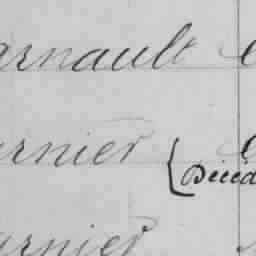 arnault
arnier
Décéd
arnier